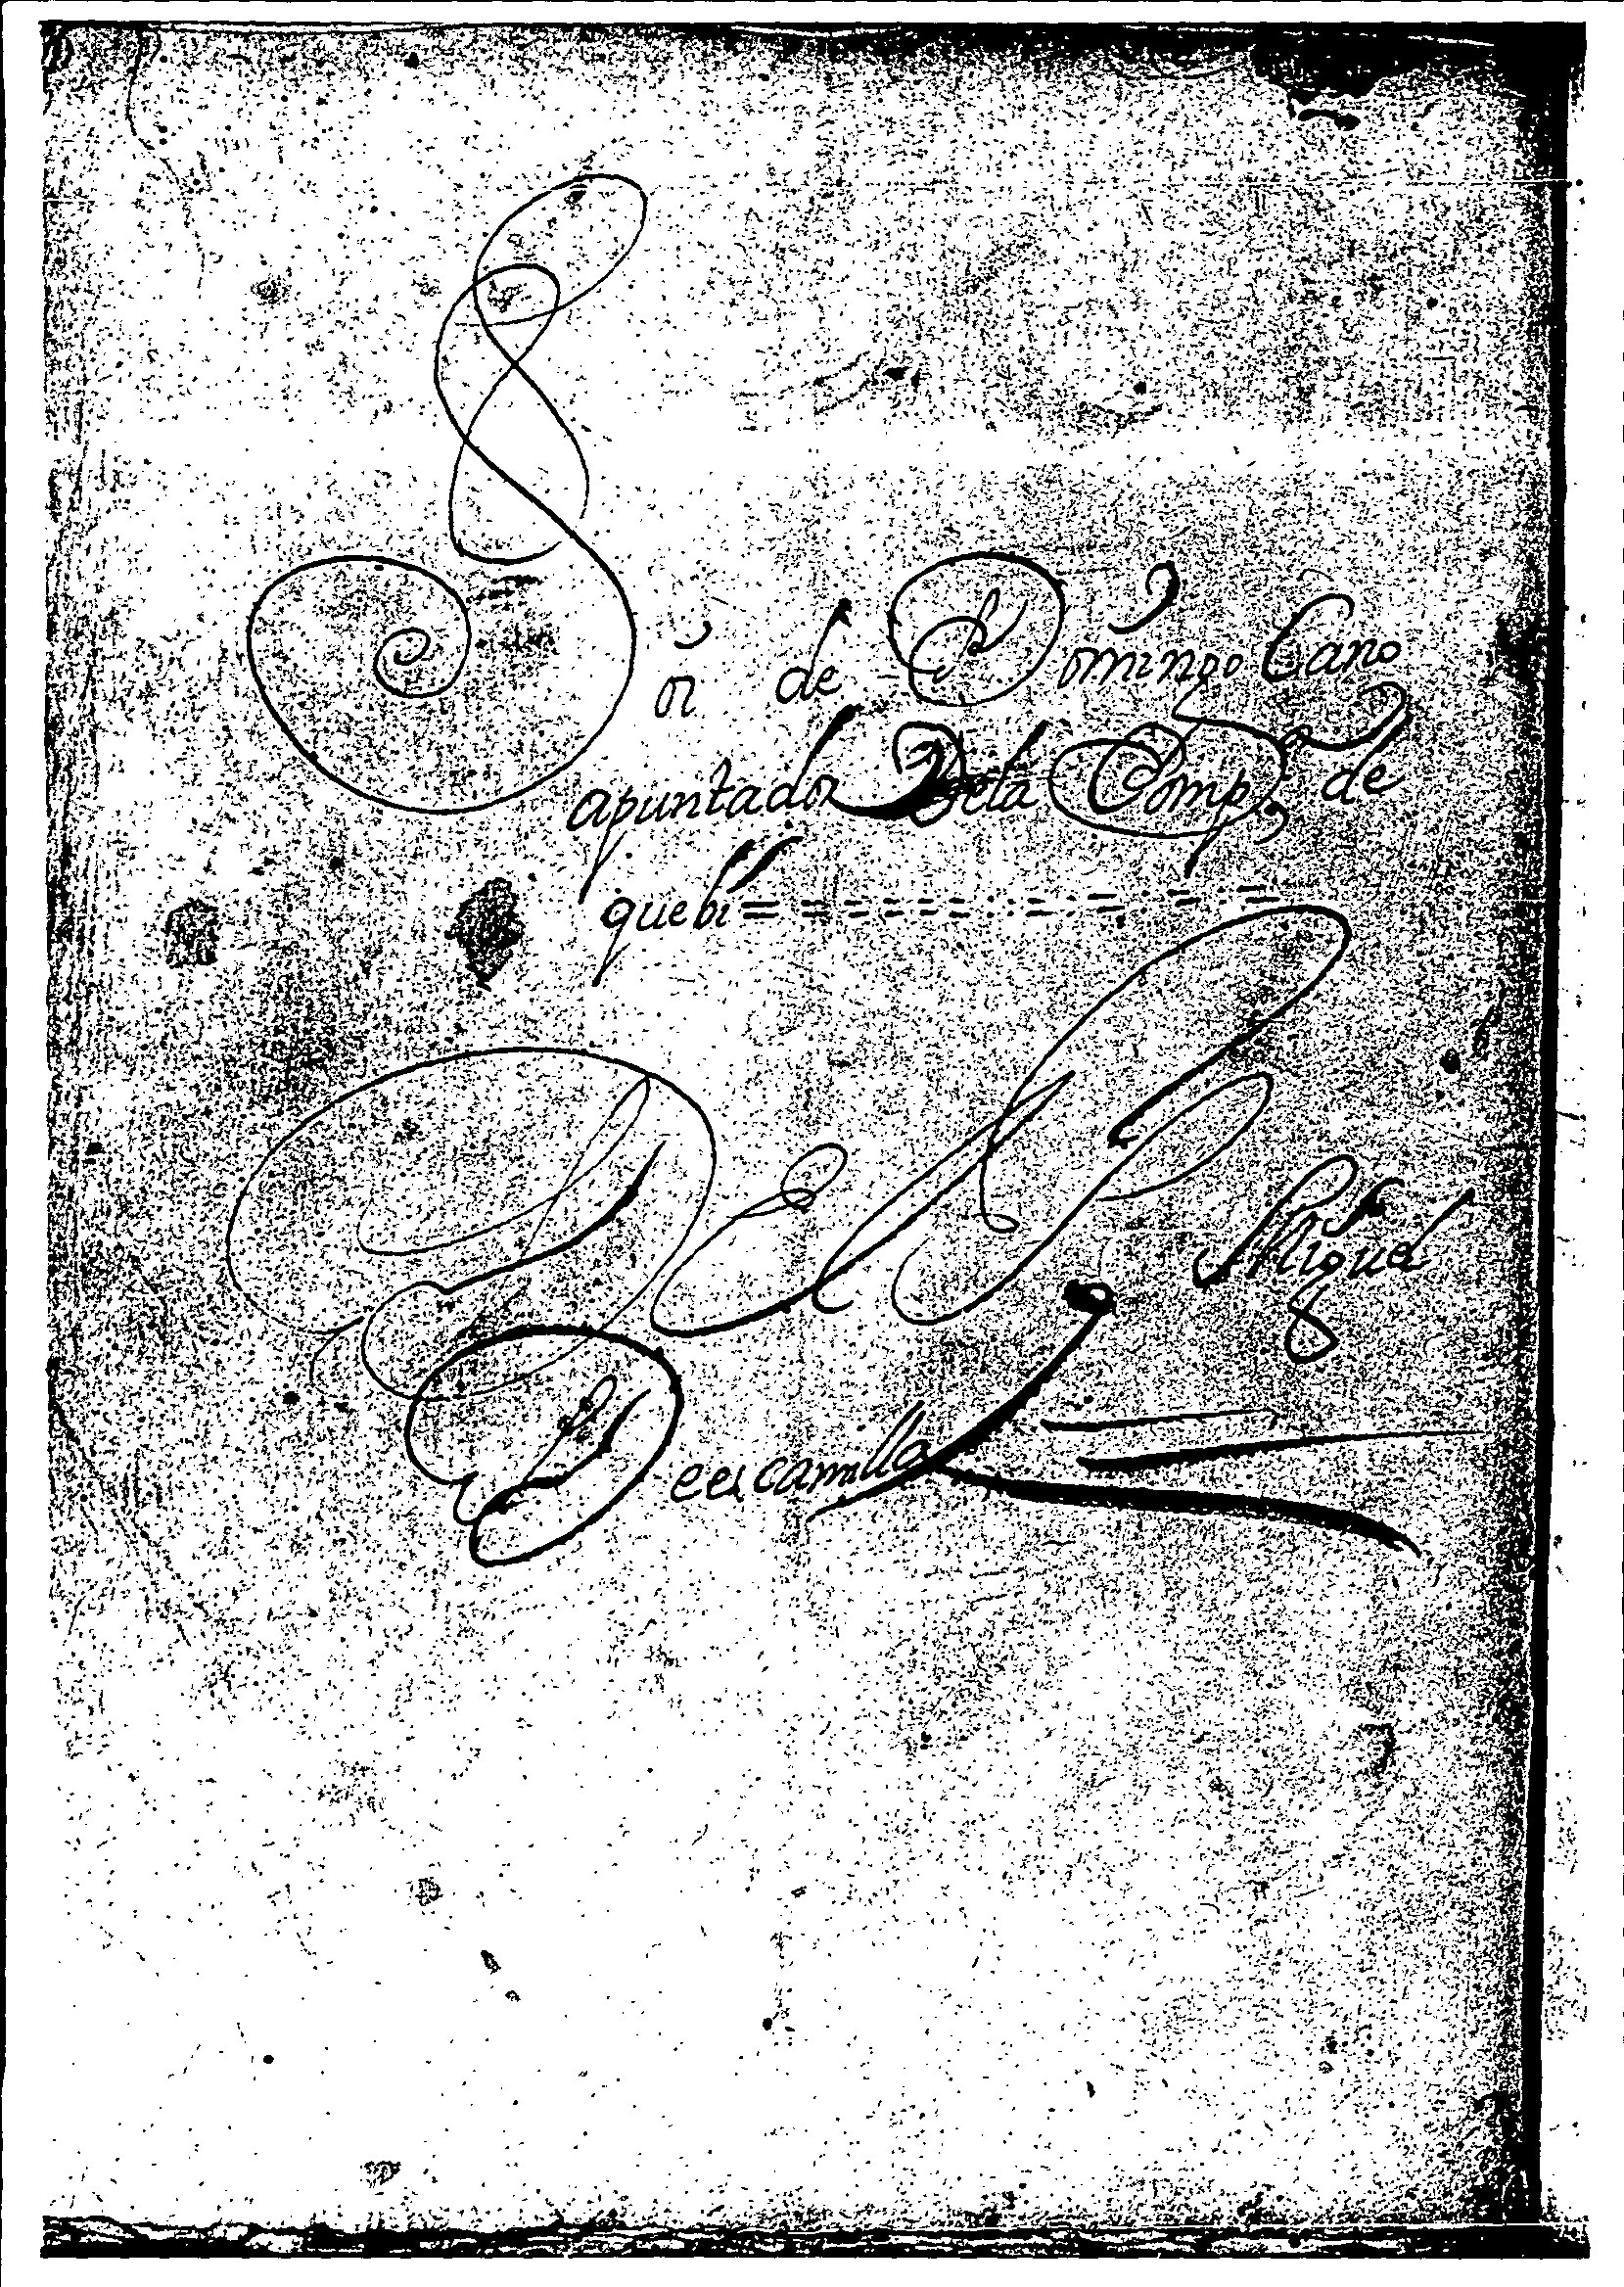 Soi de Domingo Cano
apuntador Dela Comp, de
Miguel
Deescamilla